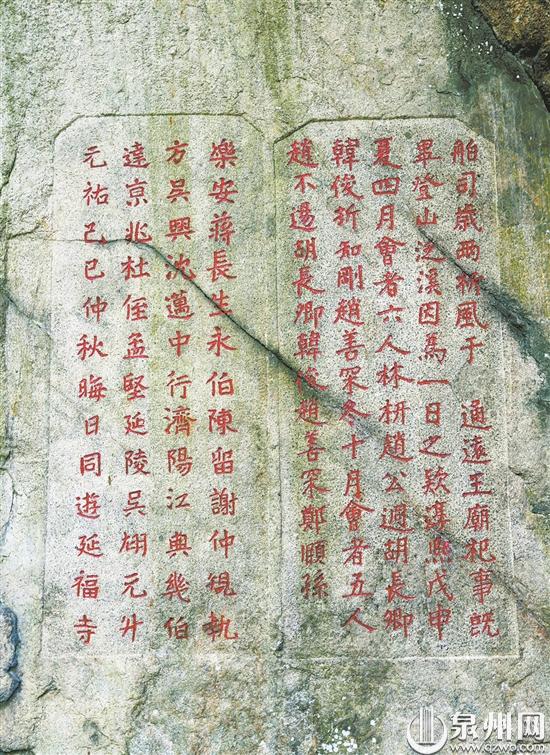 舶司歲兩祈風于 通遠王廟祀事既
畢登山泛溪因為一日之欵淳熙戊申
夏四月會者六人林枅趙公迥胡長卿
韓俊折知剛趙善罙冬十月會者五人
趙不逷胡長卿韓俊趙善罙鄭頤孫
樂安蔣長生永伯陳留謝仲規執
方吳興沈邁中行濟陽江典幾伯
達京兆杜侄孟堅延陵吳栩元升
元祐己巳仲秋晦日同遊延福寺
泉州网
www.qzwww.com